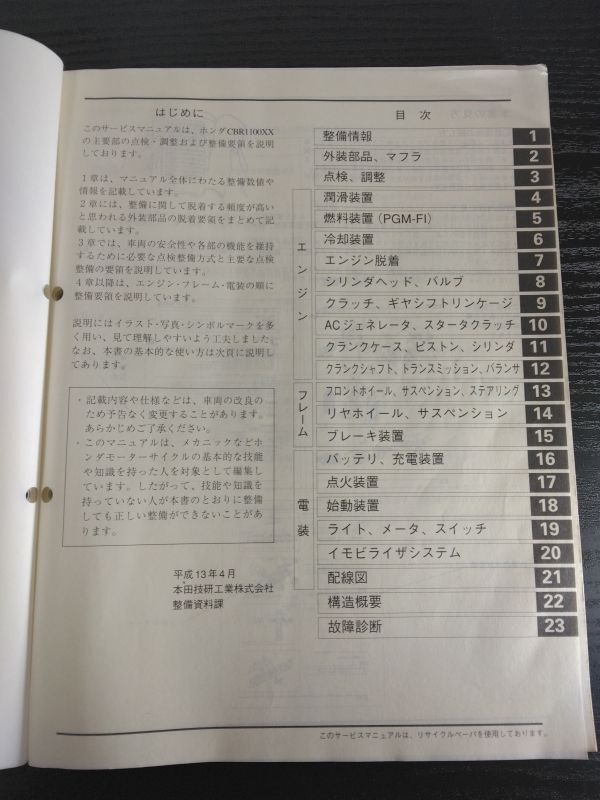 はじめに
このサービスマニュアルは、ホンダCBR1100XX
の主要部の点検・調整および整備要領を説明
しております。
1章は、マニュアル全体にわたる整備数値や
情報を記載しています。
2章には、整備に関して脱着する頻度が高い
と思われる外装部品の脱着要領をまとめて記
載しています。
3章では、車両の安全性や各部の機能を維持
するために必要な点検整備方式と主要な点検
整備の要領を説明しています。
4章以降は、エンジン・フレーム・電装の順に
整備要領を説明しています。
説明にはイラスト・写真・シンボルマークを多
く用い、見て理解しやすいよう工夫しました。
なお、本書の基本的な使い方は次頁に説明し
てあります。
・記載内容や仕様などは、車両の改良の
ため予告なく変更することがあります。
あらかじめご了承ください。
・このマニュアルは、メカニックなどホ
ンダモーターサイクルの基本的な技能
や知識を持った人を対象として編集し
ています。したがって、技能や知識を
持っていない人が本書のとおりに整備
しても正しい整備ができないことがあ
ります。
平成13年4月
本田技研工業株式会社
整備資料課
目 次
整備情報 1
外装部品、マフラ 2
点検、調整 3
エンジン
潤滑装置 4
燃料装置(PGM-FI) 5
冷却装置 6
エンジン脱着 7
シリンダヘッド、バルブ 8
クラッチ、ギヤシフトリンケージ 9
ACジェネレータ、スタータクラッチ 10
クランクケース、ピストン、シリンダ 11
クランクシャフト、トランスミッション、バランサ 12
フレーム
フロントホイール、サスペンション、ステアリング 13
リヤホイール、サスペンション 14
ブレーキ装置 15
電装
バッテリ、充電装置 16
点火装置 17
始動装置 18
ライト、メータ、スイッチ 19
イモビライザシステム 20
配線図 21
構造概要 22
故障診断 23
このサービスマニュアルは、リサイクルペーパを使用しております。